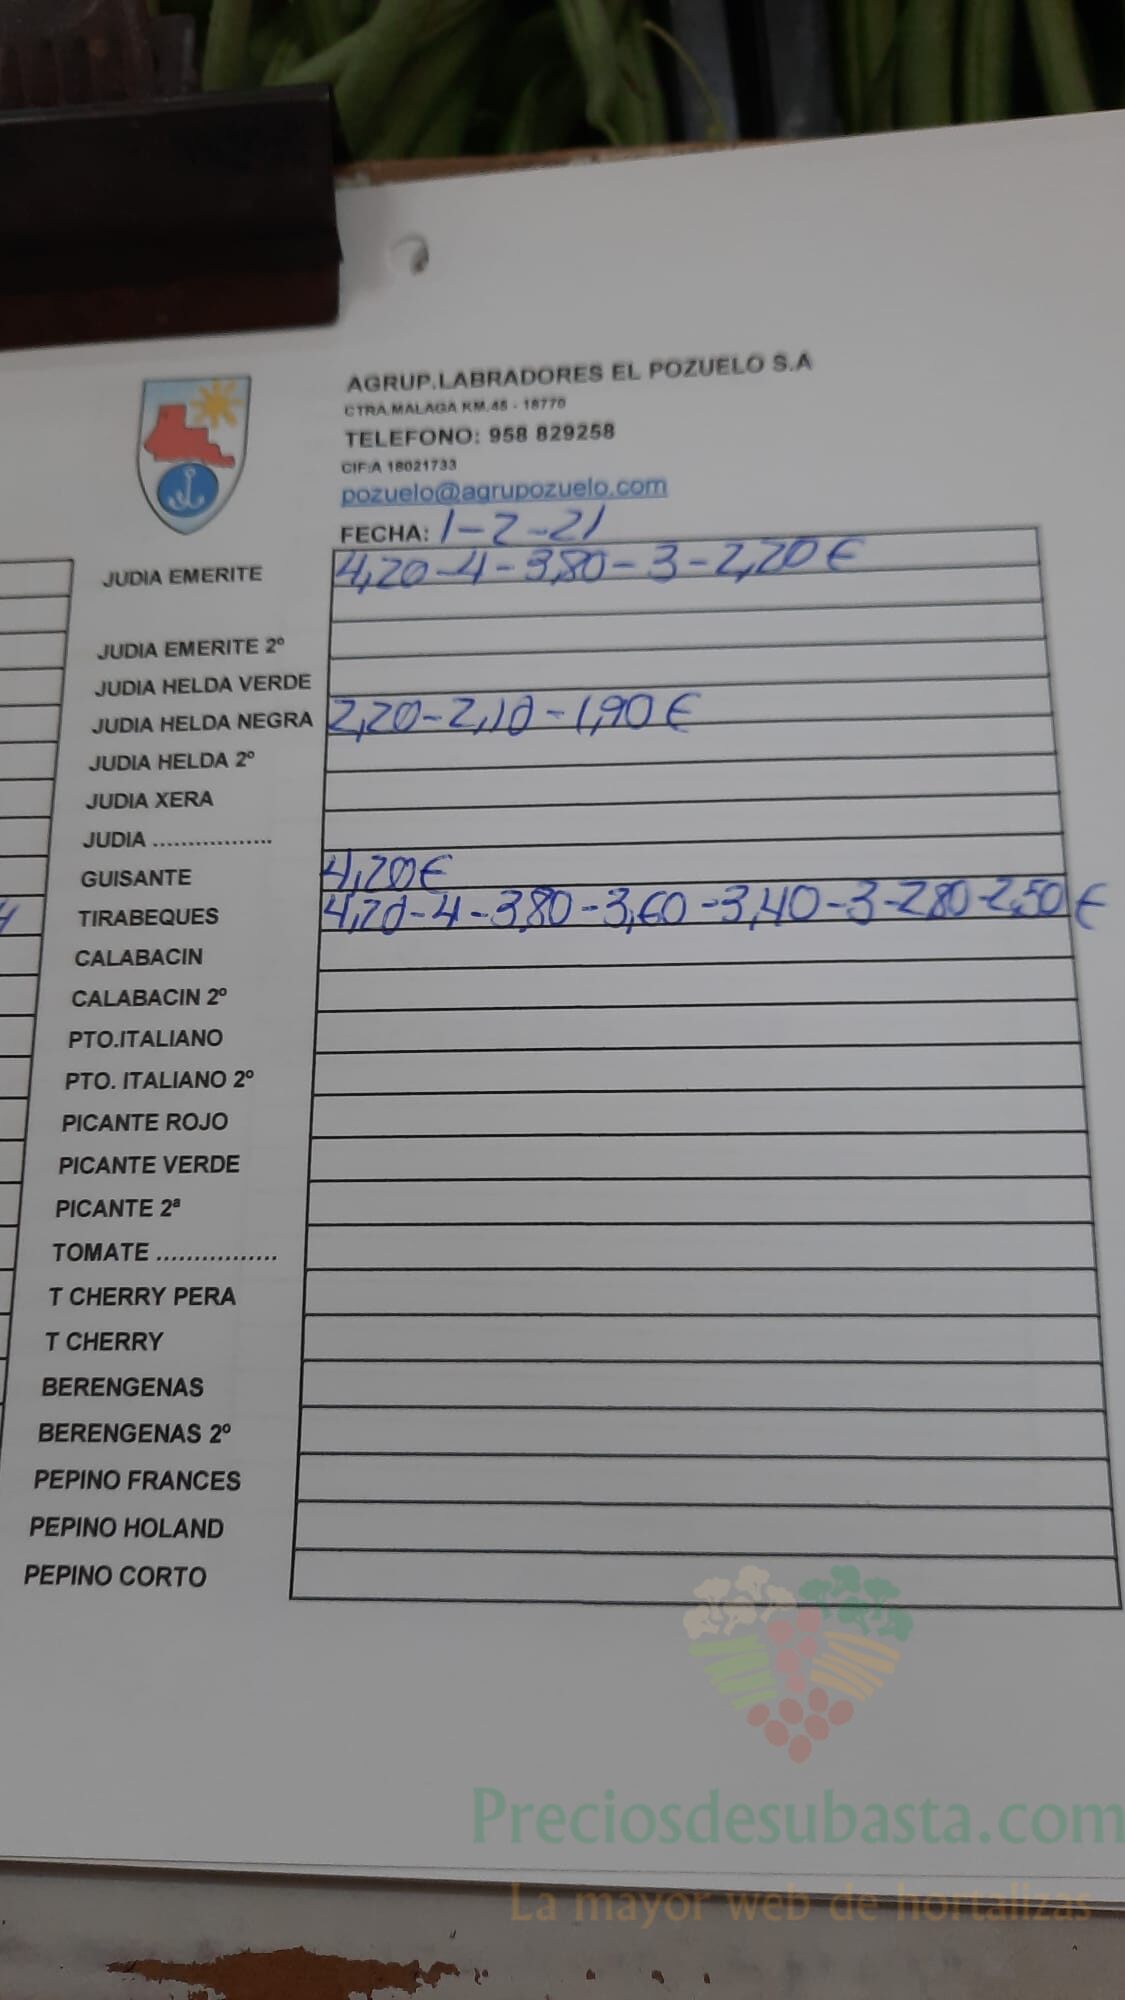 AGRUP.LABRADORES EL POZUELO S.A
CTRA.MALAGA KM.45 - 18770
TELEFONO: 958 829258
CIF:A 18021733
pozuelo@agrupozuelo.com
FECHA: 1-2-21
JUDIA EMERITE 4,20-4-3,80-3-2,20€
JUDIA EMERITE 2º
JUDIA HELDA VERDE
JUDIA HELDA NEGRA 2,20-2,10-1,90€
JUDIA HELDA 2º
JUDIA XERA
JUDIA .................
GUISANTE 4,20€
TIRABEQUES 4,20-4-3,80-3,60-3,40-3-2,80-2,50€
CALABACIN
CALABACIN 2º
PTO.ITALIANO
PTO. ITALIANO 2º
PICANTE ROJO
PICANTE VERDE
PICANTE 2ª
TOMATE ................
T CHERRY PERA
T CHERRY
BERENGENAS
BERENGENAS 2º
PEPINO FRANCES
PEPINO HOLAND
PEPINO CORTO
Preciosdesubasta.com
La mayor web de hortalizas